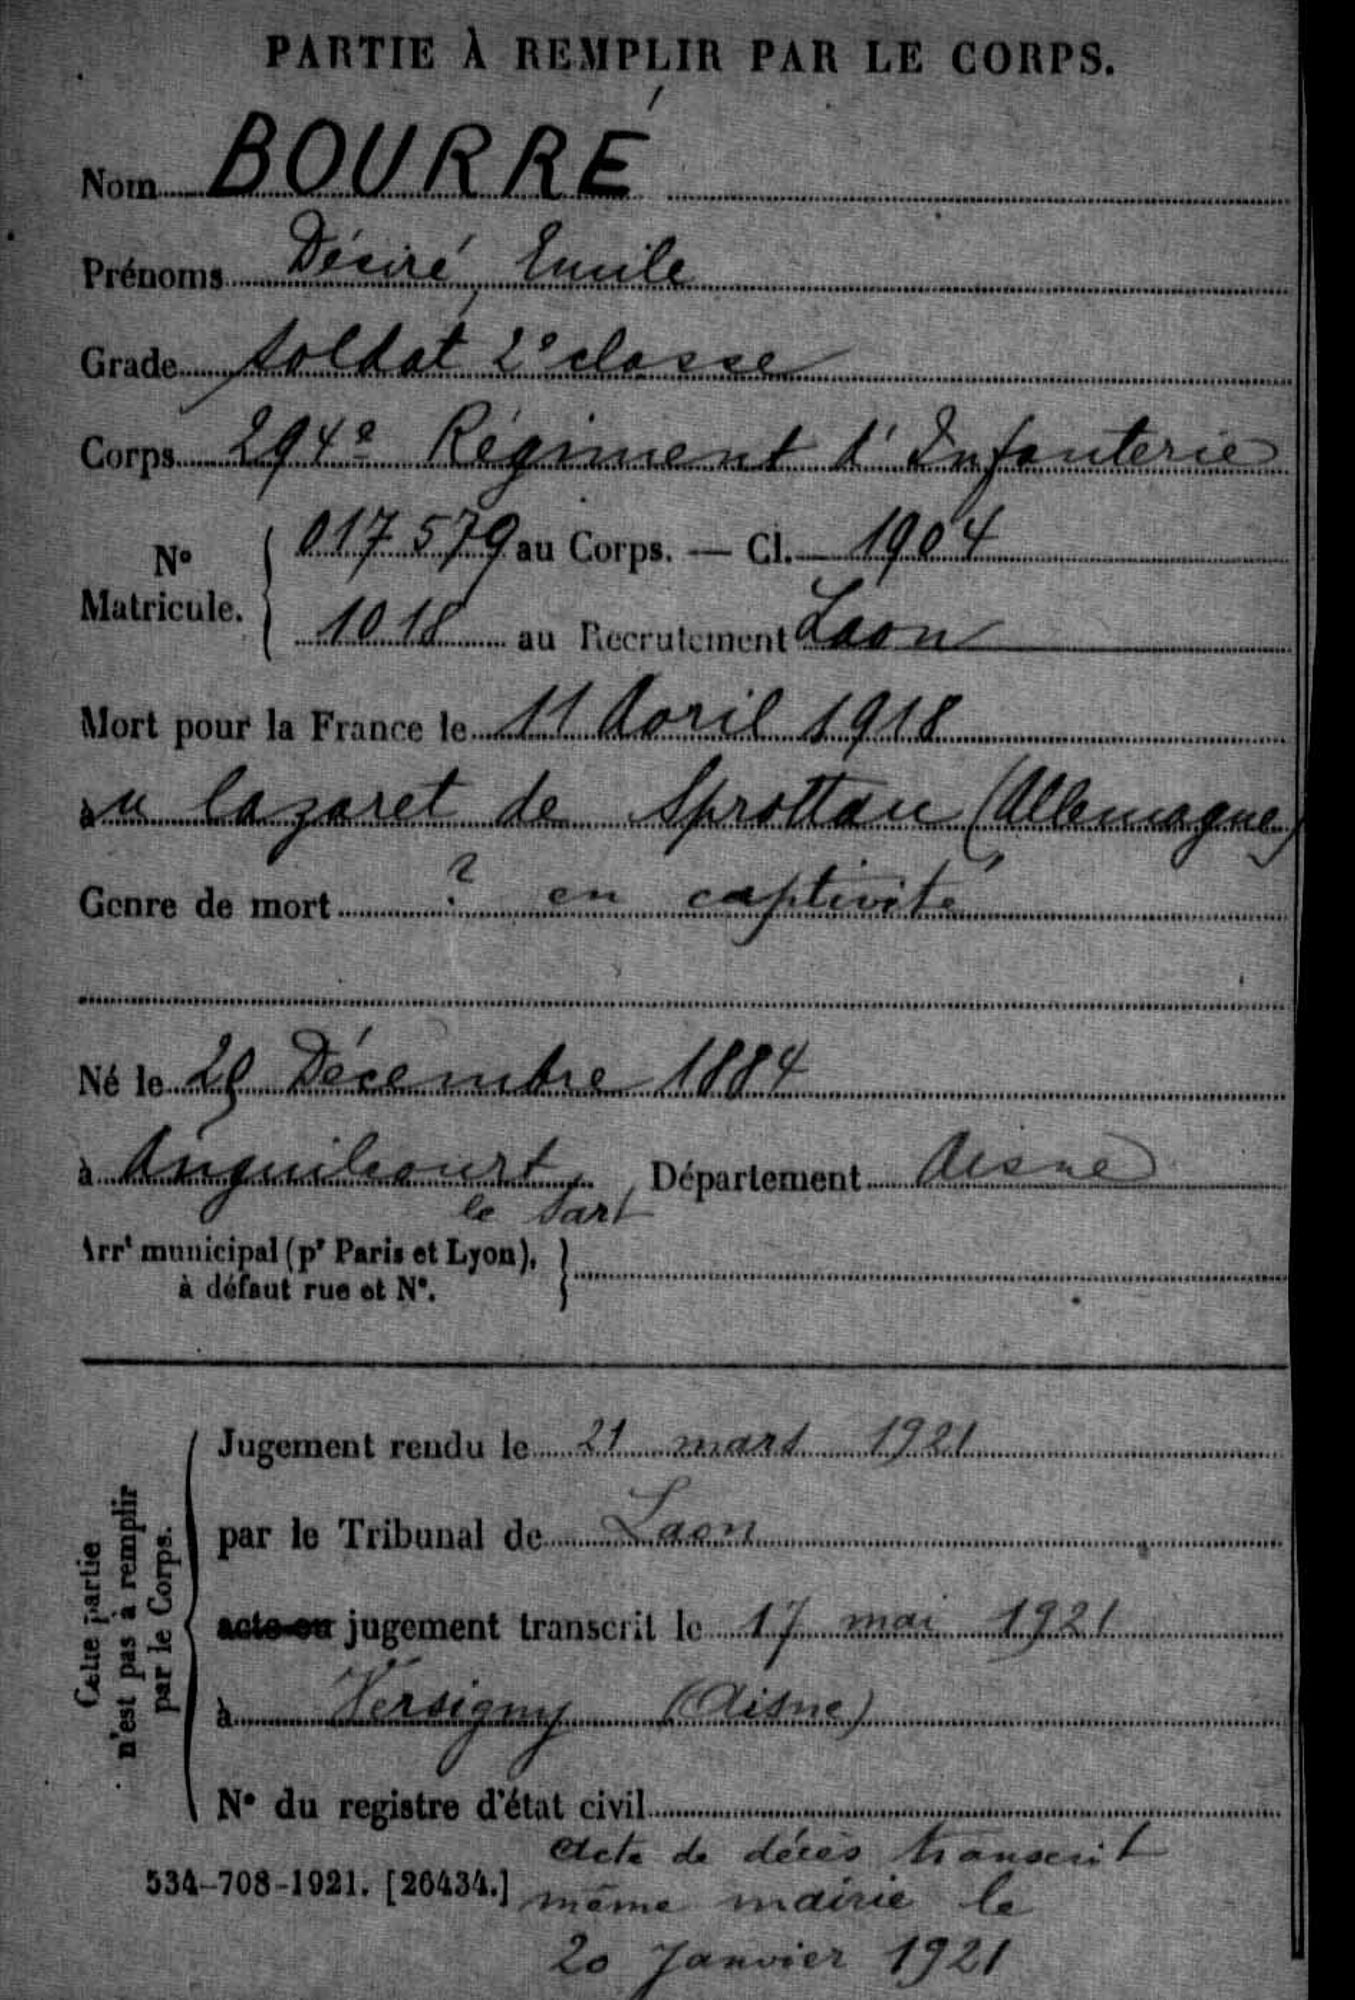 PARTIE À REMPLIR PAR LE CORPS.
Nom BOURRÉ
Prénoms Désiré Emile
Grade soldat 2e classe
Corps 294e Régiment d'Infanterie
No Matricule. { 017 579 au Corps. — Cl. 1904
1018 au Recrutement Laon
Mort pour la France le 11 Avril 1918
au lazaret de Sprottau (Allemagne)
Genre de mort ? en captivité
Né le 29 Décembre 1884
à Anguilcourt le Sart Département Aisne
Arrt municipal (pr Paris et Lyon),
à défaut rue et No.
Cette partie
n'est pas à remplir
par le Corps.
Jugement rendu le 21 mars 1921
par le Tribunal de Laon
acte ou jugement transcrit le 17 mai 1921
à Versigny (Aisne)
No du registre d'état civil
Acte de décès transcrit
534-708-1921. [26434.] même mairie le
20 Janvier 1921